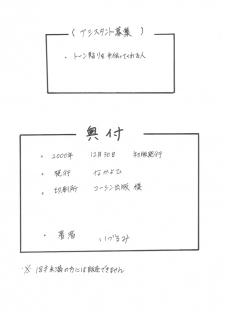 （アシスタント募集）
・トーン貼りを手伝ってくれる人
奥付
・2000年 12月30日 初版発行
・発行 なかよひ
・印刷所 コーシン出版 様
・著者 いづみ
※18才未満の方には販売できません